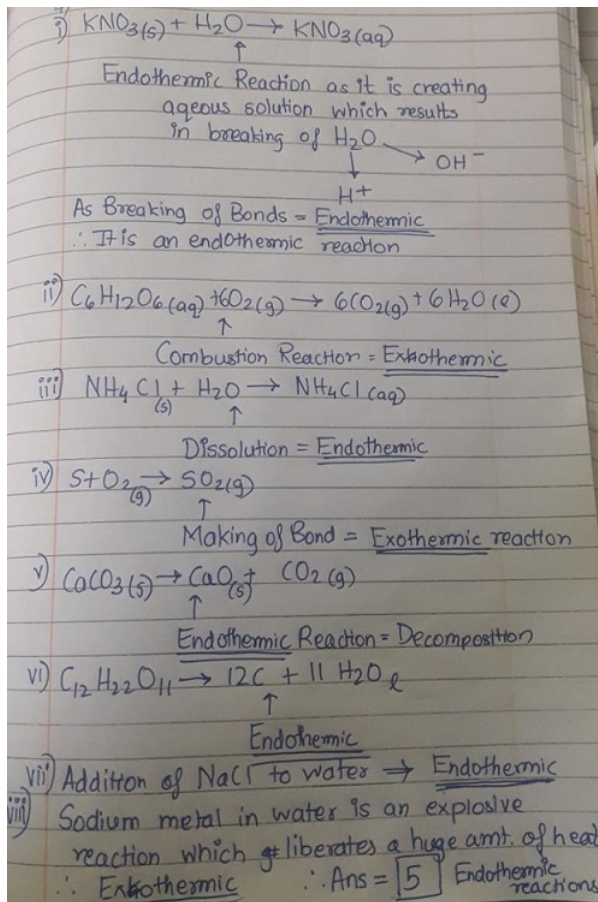 i) KNO3(s) + H2O → KNO3(aq)
Endothermic Reaction as it is creating
aqeous solution which results
in breaking of H2O → OH-
↓
H+
As Breaking of Bonds = Endothermic
∴ It is an endothermic reaction
ii) C6H12O6(aq) + 6O2(g) → 6CO2(g) + 6H2O(l)
Combustion Reaction = Exothermic
iii) NH4Cl(s) + H2O → NH4Cl(aq)
Dissolution = Endothermic
iv) S + O2(g) → SO2(g)
Making of Bond = Exothermic reaction
v) CaCO3(s) → CaO(s) + CO2(g)
Endothermic Reaction = Decomposition
vi) C12H22O11 → 12C + 11H2O l
Endothermic
vii) Addition of NaCl to water → Endothermic
viii) Sodium metal in water is an explosive
reaction which liberates a huge amt. of heat
∴ Exothermic ∴ Ans = 5 Endothermic
reactions